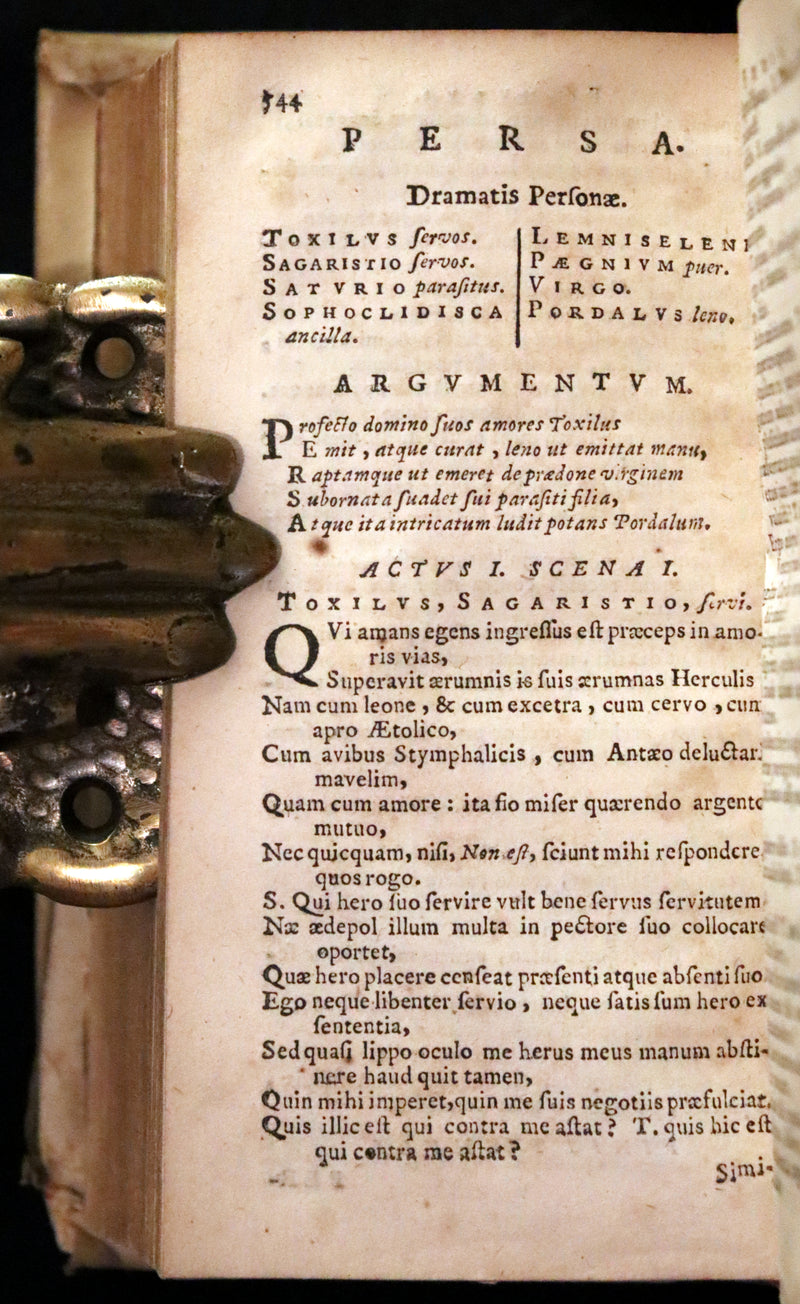 544
PERSA.
Dramatis Perſonæ.
TOXILVS ſervos.
SAGARISTIO ſervos.
SATVRIO paraſitus.
SOPHOCLIDISCA
ancilla.
LEMNISELENI
PÆGNIVM puer.
VIRGO.
PORDALVS leno.
ARGVMENTVM.
Profecto domino ſuos amores Toxilus
E mit, atque curat, leno ut emittat manu,
R aptamque ut emeret de prædone virginem
S ubornata ſuadet ſui paraſiti filia,
A tque ita intricatum ludit potans Pordalum.
ACTVS I. SCENA I.
TOXILVS, SAGARISTIO, ſervi.
QVi amans egens ingreſſus eſt præceps in amo-
ris vias,
Superavit ærumnis is ſuis ærumnas Herculis
Nam cum leone, & cum excetra, cum cervo, cum
apro Ætolico,
Cum avibus Stymphalicis, cum Antæo deluctari
mavelim,
Quam cum amore: ita fio miſer quærendo argento
mutuo,
Nec quicquam, niſi, Non eſt, ſciunt mihi reſpondere
quos rogo.
S. Qui hero ſuo ſervire vult bene ſervus ſervitutem
Næ ædepol illum multa in pectore ſuo collocare
oportet,
Quæ hero placere cenſeat præſenti atque abſenti ſuo
Ego neque libenter ſervio, neque ſatis ſum hero ex
ſententia,
Sed quaſi lippo oculo me herus meus manum abſti-
nere haud quit tamen,
Quin mihi imperet, quin me ſuis negotiis præfulciat.
Quis illic eſt qui contra me aſtat? T. quis hic eſt
qui contra me aſtat?
Simi-